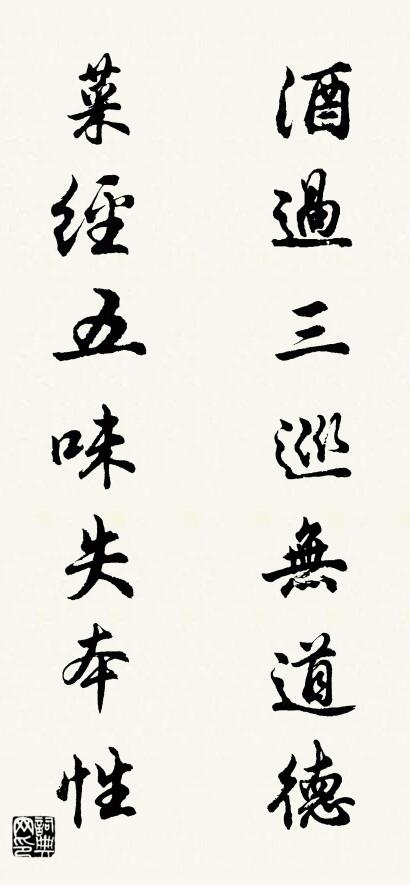 酒過三巡無道德
菜經五味失本性
詞典网印